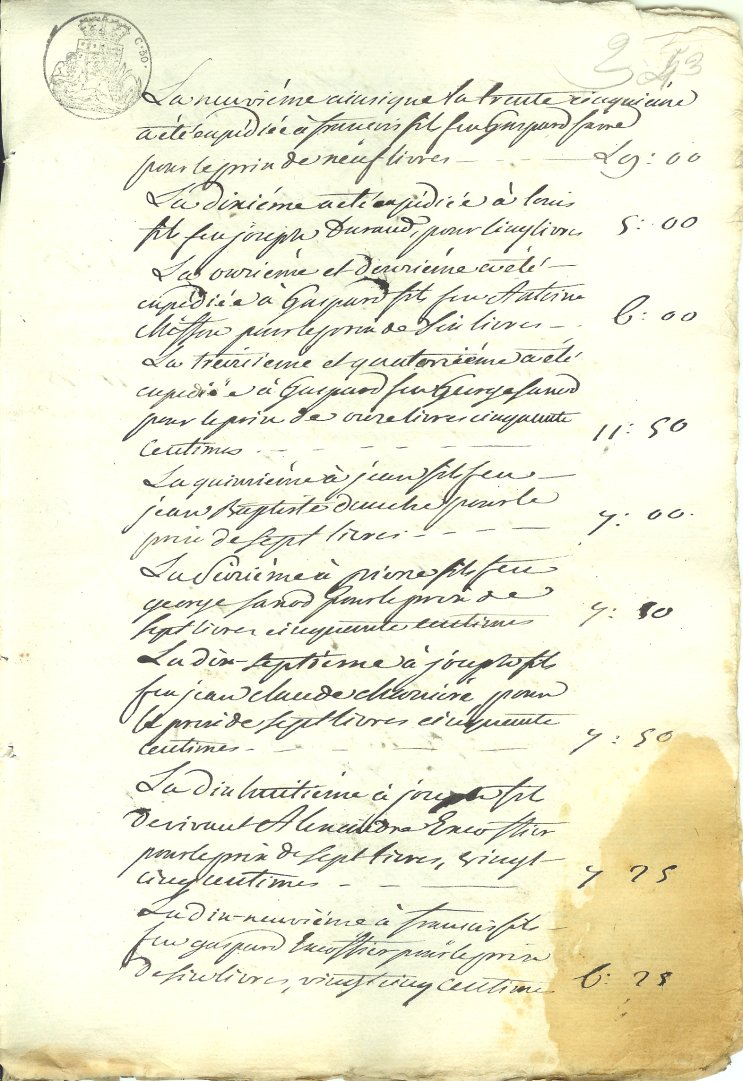 C. 50.
2 53
La neuviéme ainsique la trente cinquiéme
a été expédiée à francois fils feu Gaspard favre
pour le prix de neuf livres - L 9: 00
La dixiéme a été expédiée à louis
fils feu joseph Durand, pour cinq livres 5: 00
La onziéme et douziéme a été
expédiée à Gaspard fils feu Antoine
pour le prix de Six livres - 6: 00
La treizieme et quatorziéme a été
expédiée à Gaspard feu George
pour le prix de onze livres cinquante
Centimes 11: 50
La quinziéme à jean fils feu
jean Baptiste pour le
prix de sept livres - 7: 00
La Seiziéme à pierre fils feu
george pour le prix de
sept livres cinquante centimes 7: 50
La dix-septiéme à joseph fils
feu jean claude pour
le prix de sept livres cinquante
centimes - 7: 50
La dix huitiéme à joseph fils
de vivant Alexandre Encottier
pour le prix de sept livres, vingt
cinq centimes - 7 25
La dix-neuviéme à francois fils
feu gaspard Encottier pour le prix
de six livres, vingt cinq centimes 6: 25